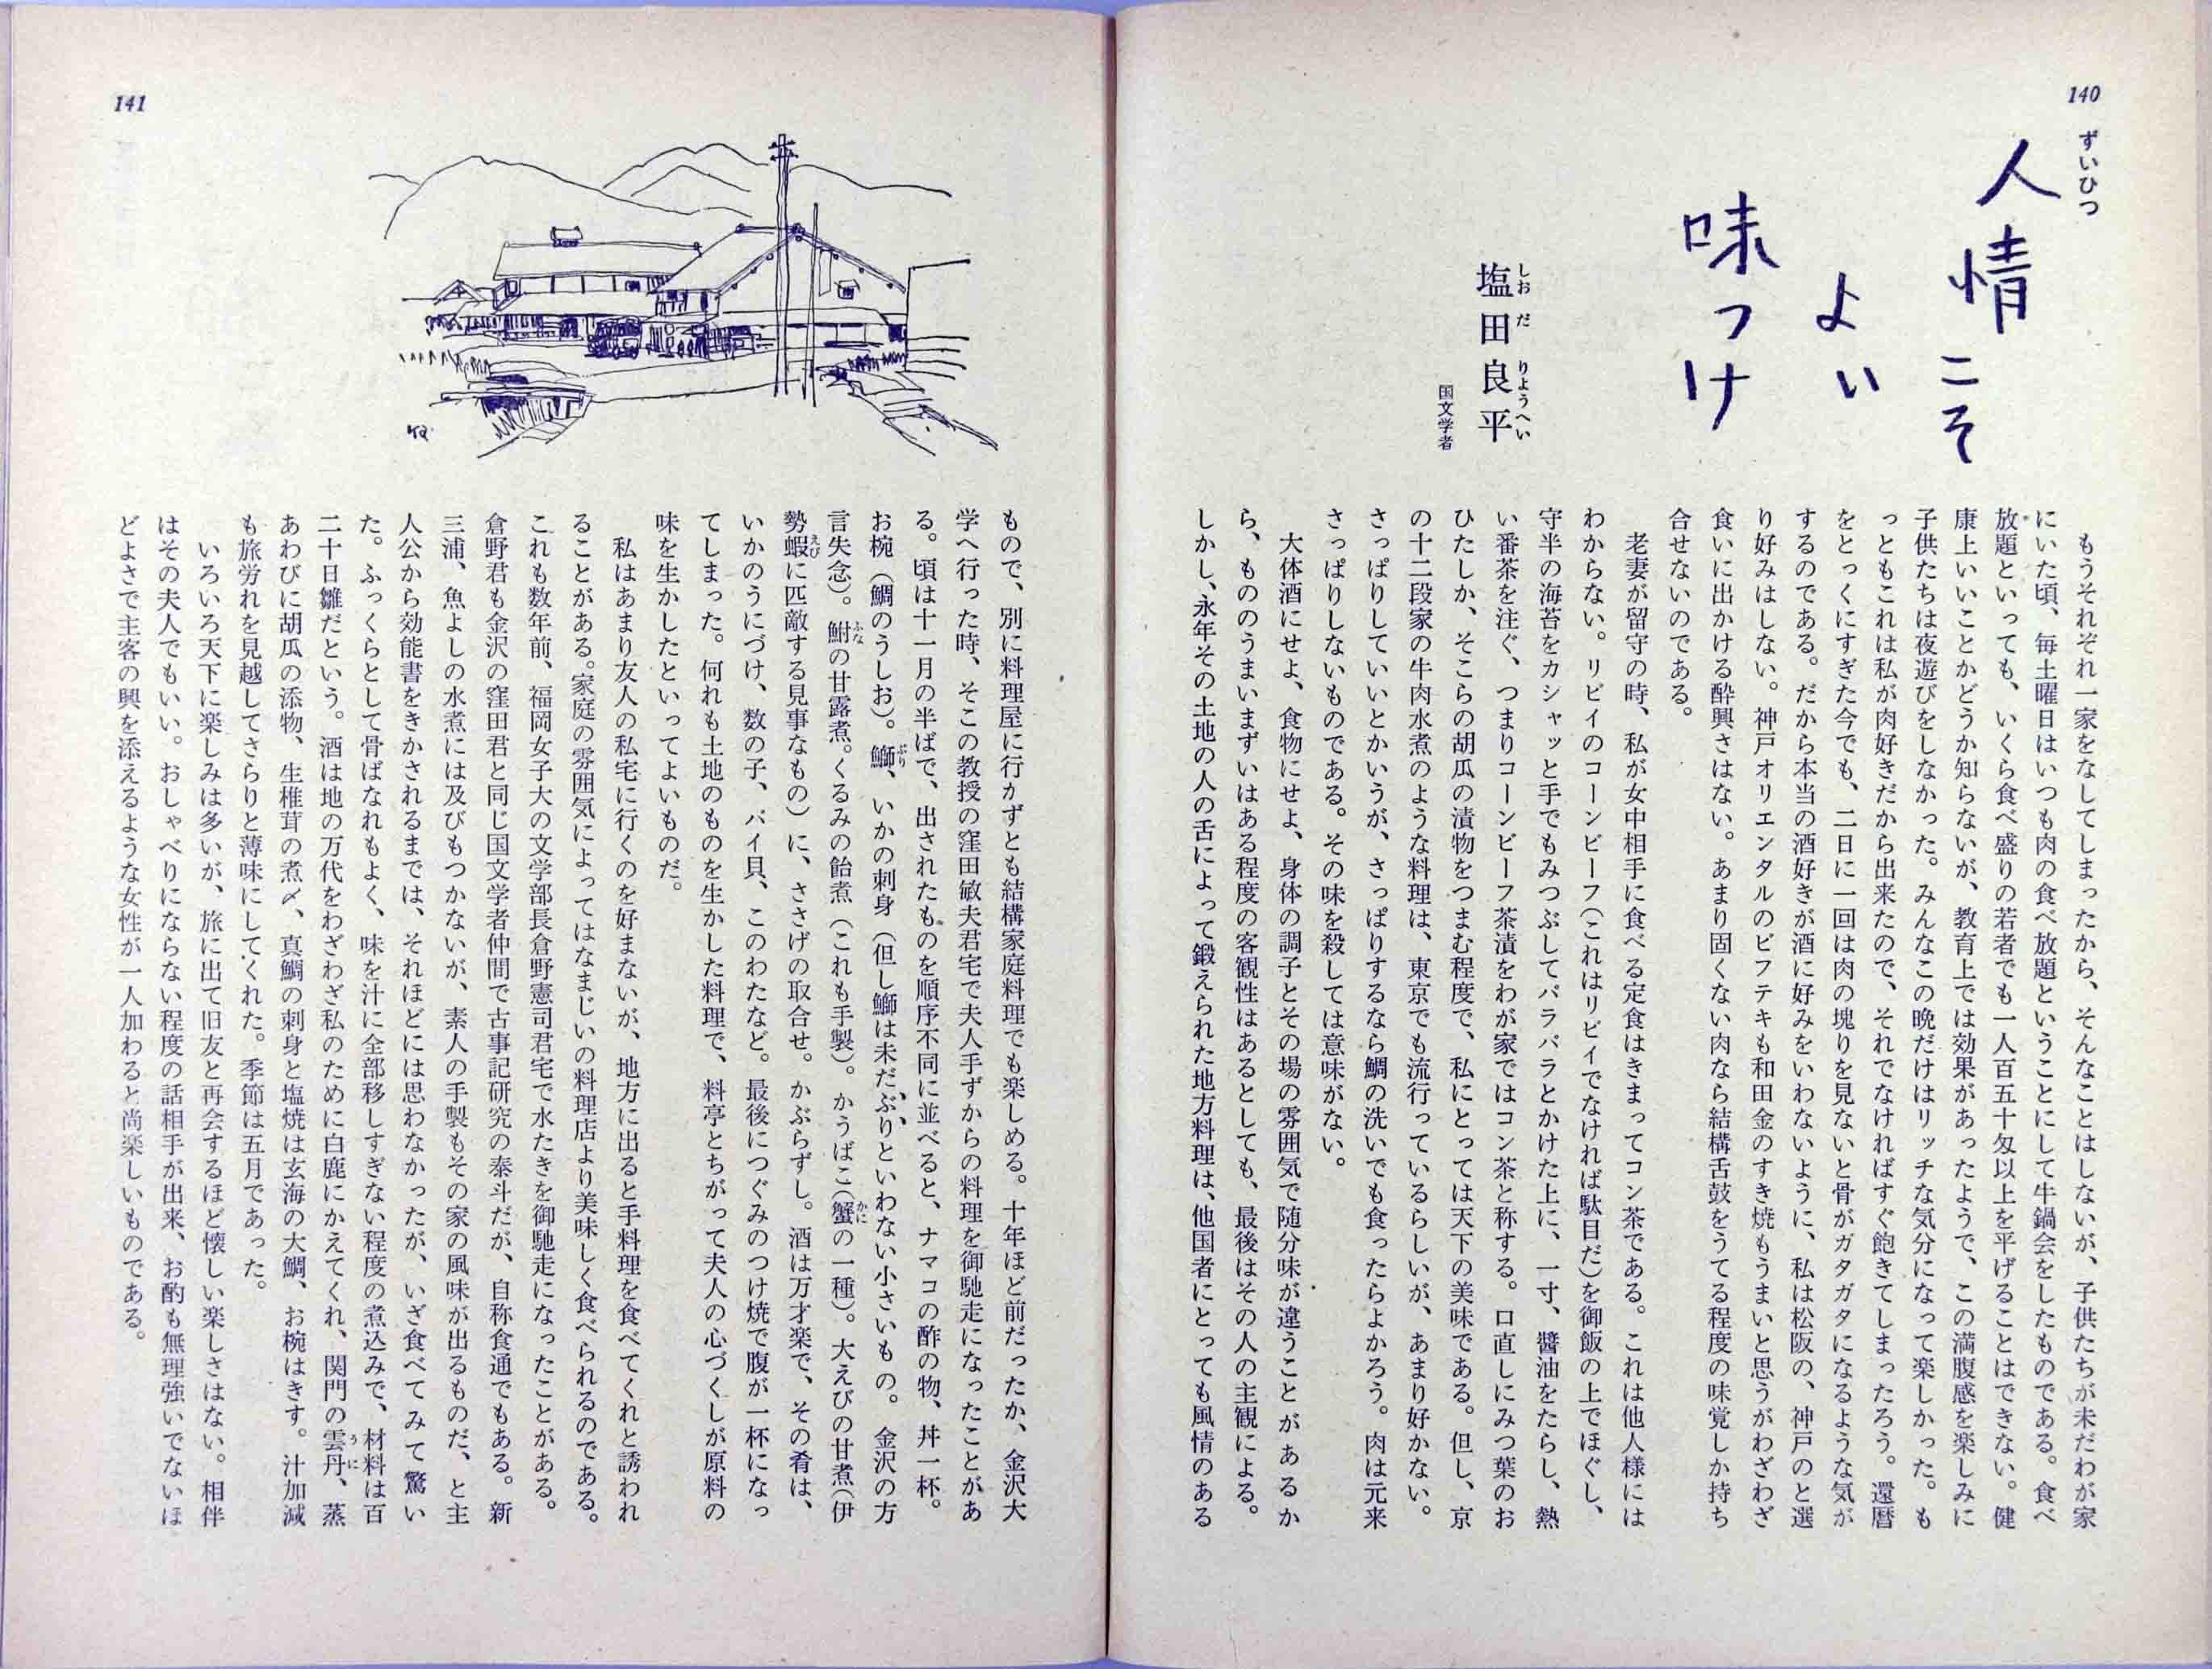 140
ずいひつ
人情こそ
よい
味つけ
塩田良平
しおだりょうへい
国文学者
もうそれぞれ一家をなしてしまったから、そんなことはしないが、子供たちが未だわが家
にいた頃、毎土曜日はいつも肉の食べ放題ということにして牛鍋会をしたものである。食べ
放題といっても、いくら食べ盛りの若者でも一人百五十匁以上を平げることはできない。健
康上いいことかどうか知らないが、教育上では効果があったようで、この満腹感を楽しみに
子供たちは夜遊びをしなかった。みんなこの晩だけはリッチな気分になって楽しかった。も
っともこれは私が肉好きだから出来たので、それでなければすぐ飽きてしまったろう。還暦
をとっくにすぎた今でも、二日に一回は肉の塊りを見ないと骨がガタガタになるような気が
するのである。だから本当の酒好きが酒に好みをいわないように、私は松阪の、神戸のと選
り好みはしない。神戸オリエンタルのビフテキも和田金のすき焼もうまいと思うがわざわざ
食いに出かける酔興さはない。あまり固くない肉なら結構舌鼓をうてる程度の味覚しか持ち
合せないのである。
老妻が留守の時、私が女中相手に食べる定食はきまってコン茶である。これは他人様には
わからない。リビイのコーンビーフ（これはリビイでなければ駄目だ）を御飯の上でほぐし、
守半の海苔をカシャッと手でもみつぶしてパラパラとかけた上に、一寸、醬油をたらし、熱
い番茶を注ぐ、つまりコーンビーフ茶漬をわが家ではコン茶と称する。口直しにみつ葉のお
ひたしか、そこらの胡瓜の漬物をつまむ程度で、私にとっては天下の美味である。但し、京
の十二段家の牛肉水煮のような料理は、東京でも流行っているらしいが、あまり好かない。
さっぱりしていいとかいうが、さっぱりするなら鯛の洗いでも食ったらよかろう。肉は元来
さっぱりしないものである。その味を殺しては意味がない。
大体酒にせよ、食物にせよ、身体の調子とその場の雰囲気で随分味が違うことがあるか
ら、もののうまいまずいはある程度の客観性はあるとしても、最後はその人の主観による。
しかし、永年その土地の人の舌によって鍛えられた地方料理は、他国者にとっても風情のある
141
ものので、別に料理屋に行かずとも結構家庭料理でも楽しめる。十年ほど前だったか、金沢大
学へ行った時、そこの教授の窪田敏夫君宅で夫人手ずからの料理を御馳走になったことがあ
る。頃は十一月の半ばで、出されたものを順序不同に並べると、ナマコの酢の物、丼一杯。
お椀（鯛のうしお）。鰤、いかの刺身（但し鰤は未だぶりといわない小さいもの。金沢の方
言失念）。鮒の甘露煮。くるみの飴煮（これも手製）。かうばこ（蟹の一種）。大えびの甘煮（伊
勢蝦に匹敵する見事なもの）に、ささげの取合せ。かぶらずし。酒は万才楽で、その肴は、
いかのうにづけ、数の子、バイ貝、このわたなど。最後につぐみのつけ焼で腹が一杯になっ
てしまった。何れも土地のものを生かした料理で、料亭とちがって夫人の心づくしが原料の
味を生かしたといってよいものだ。
私はあまり友人の私宅に行くのを好まないが、地方に出ると手料理を食べてくれと誘われ
ることがある。家庭の雰囲気によってはなまじいの料理店より美味しく食べられるのである。
これも数年前、福岡女子大の文学部長倉野憲司君宅で水たきを御馳走になったことがある。
倉野君も金沢の窪田君と同じ国文学者仲間で古事記研究の泰斗だが、自称食通でもある。新
三浦、魚よしの水煮には及びもつかないが、素人の手製もその家の風味が出るものだ、と主
人公から効能書をきかされるまでは、それほどには思わなかったが、いざ食べてみて驚い
た。ふっくらとして骨ばなれもよく、味を汁に全部移しすぎない程度の煮込みで、材料は百
二十日雛だという。酒は地の万代をわざわざ私のために白鹿にかえてくれ、関門の雲丹、蒸
あわびに胡瓜の添物、生椎茸の煮〆、真鯛の刺身と塩焼は玄海の大鯛、お椀はきす。汁加減
も旅労れを見越してさらりと薄味にしてくれた。季節は五月であった。
いろいろ天下に楽しみは多いが、旅に出て旧友と再会するほど懐しい楽しさはない。相伴
はその夫人でもいい。おしゃべりにならない程度の話相手が出来、お酌も無理強いでないほ
どよさで主客の興を添えるような女性が一人加わると尚楽しいものである。